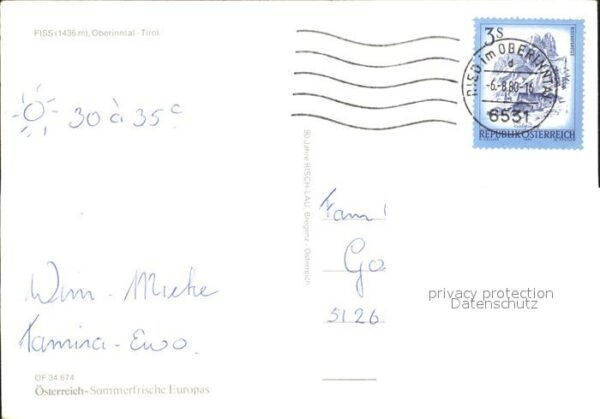 FISS (1436 m), Oberinntal - Tirol
☼ 30 à 35°C
Wim - Mieke
Tamira - Ewo.
OF 34 674
Österreich - Sommerfrische Europas
90 Jahre RISCH-LAU, Bregenz - Österreich
3 S
RIED im OBERINNTAL
d
-6.-8.80-16
6531
REPUBLIK ÖSTERREICH
Fam!
Go
5126
privacy protection
Datenschutz